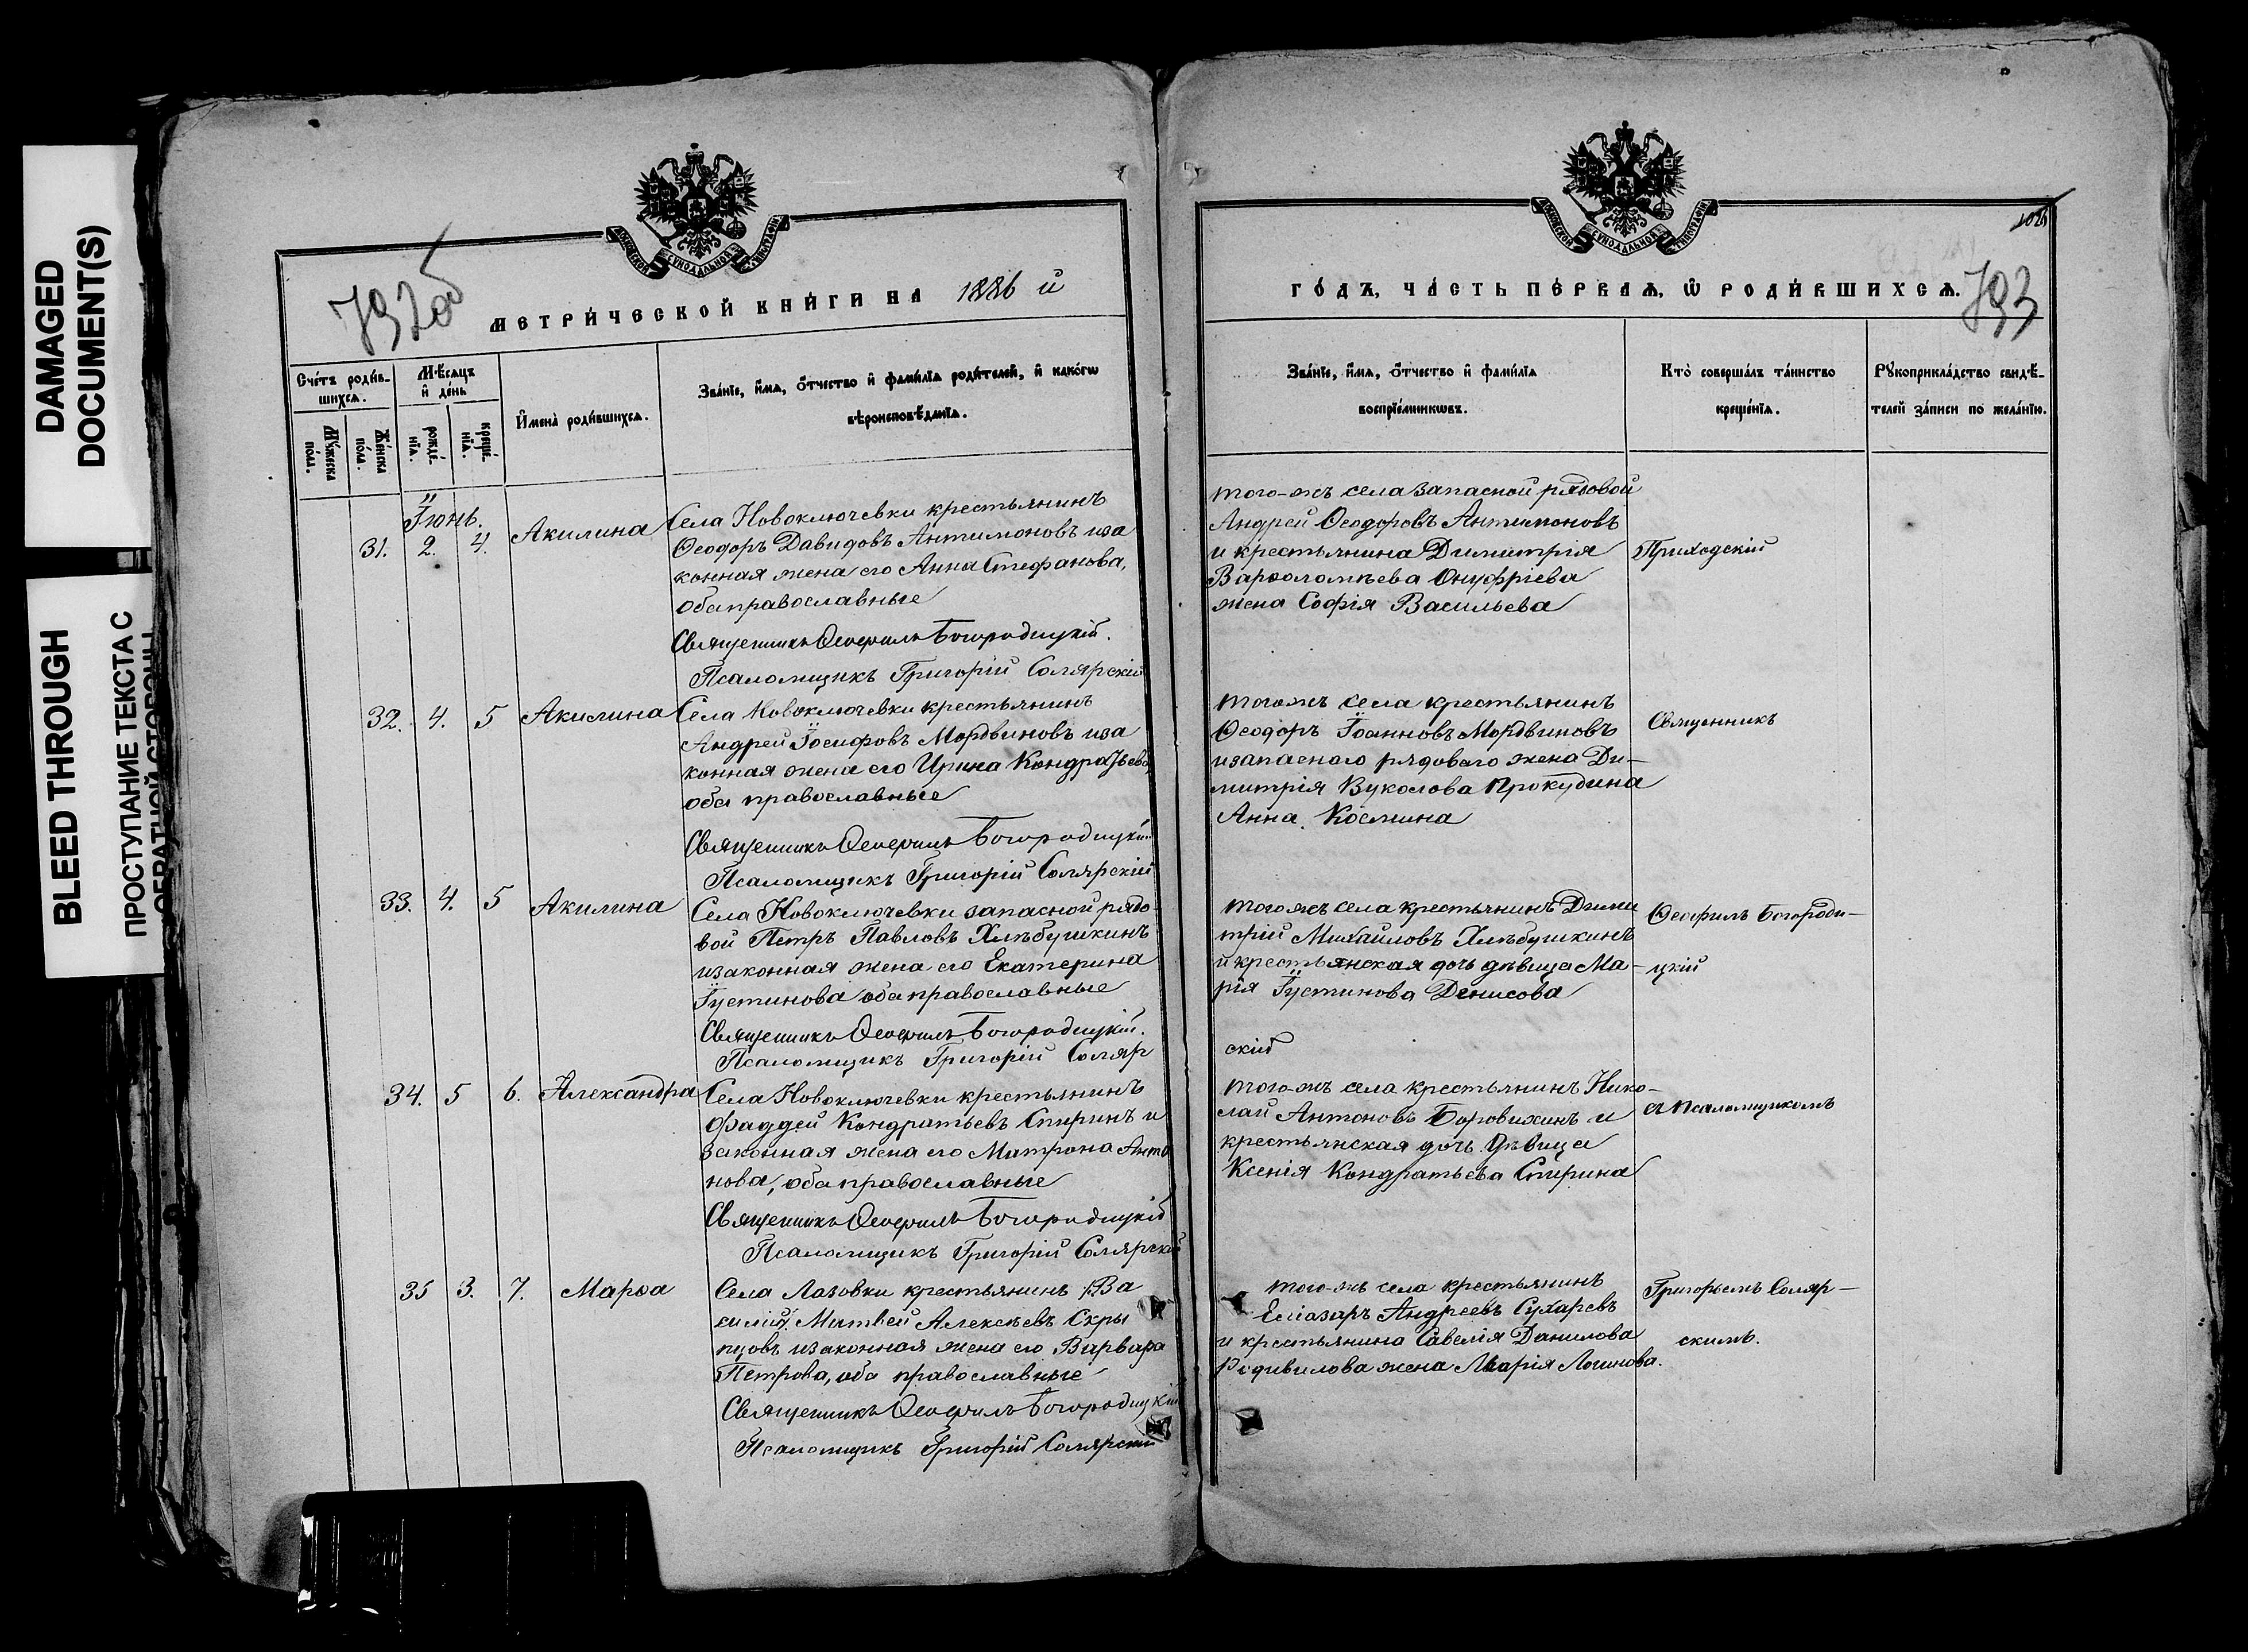 DAMAGED
DOCUMENT(S)
BLEED THROUGH
ПРОСТУПАНИЕ ТЕКСТА С
ОБРАТНОЙ СТОРОНЫ
792об
МЕТРИ́ЧЕСКОЙ КНИ́ГИ НА 1886 й
Сче́тъ роди́в-
шихсѧ.
Мꙋ́жеска
по́ла.
Же́нска
по́ла.
Мѣ́сѧцъ
и҆ де́нь
рожде́-
нїѧ.
креще́-
нїѧ.
И҆мена̀ роди́вшихсѧ.
Зва́нїе, и҆́мѧ, ѻ҆́тчество и҆ фами́лїа роди́телей, и҆ како́гѡ
вѣроисповѣ́данїѧ.
Іюнь.
31. 2. 4. Акилина
Села Новоключевки крестьянинъ
Ѳеодоръ Давидовъ Антимоновъ иза
конная жена его Анна Стефанова,
оба православные
Священникъ Ѳеофилъ Богородицкій.
Псаломщикъ Григорій Солярскій
32. 4. 5 Акилина
Села Новоключевки крестьянинъ
Андрей Іосифовъ Мордвиновъ иза
конная жена его Ирина Кондратьева,
оба православные
Священникъ Ѳеофилъ Богородицкій
Псаломщикъ Григорій Солярскій
33. 4. 5 Акилина
Села Новоключевки запасной рядо-
вой Петръ Павловъ Хлѣбушкинъ
изаконная жена его Екатерина
Іустинова оба православные
Священникъ Ѳеофилъ Богородицкій.
Псаломщикъ Григорій Соляр
34. 5 6. Александра
Села Новоключевки крестьянинъ
Фаддей Кондратьевъ Спиринъ и
законная жена его Матрона Анто
нова, оба православные
Священникъ Ѳеофилъ Богородицкій
Псаломщикъ Григорій Солярскій
35 3. 7. Марѳа
Села Лазовки крестьянинъ /Ва
силій/ Матвей Алексѣевъ Скры
пцовъ изаконная жена его Варвара
Петрова, оба православные
Священникъ Ѳеофилъ Богородицкій
Псаломщикъ Григорій Солярскій
ГО́ДЪ, ЧА́СТЬ ПЕ́РВАѦ, Ѡ҆ РОДИ́ВШИХСѦ.
793
Зва́нїе, и҆́мѧ, ѻ҆́тчество и҆ фами́лїа
воспрїе́мникѡвъ.
Кто̀ соверша́лъ та́инство
креще́нїѧ.
Рꙋкоприкла́дство свидѣ́-
телей за́писи по жела́нїю.
того-жъ села запасной рядовой
Андрей Ѳеодоровъ Антимоновъ
и крестьянина Димитрія
Варѳоломѣева Онуфріева
жена Софія Васильева
Приходскій
тогожъ села крестьянинъ
Ѳеодоръ Іоанновъ Мордвиновъ
изапасного рядоваго жена Ди-
митрія Вуколова Прокудина
Анна Косьмина
Священникъ
тогожъ села крестьянинъ Дими
трій Михайловъ Хлѣбушкинъ
и крестьянская дочь дѣвица Ма-
рія Іустинова Денисова
Ѳеофилъ Богороди-
цкій
скій
того-жъ села крестьянинъ Нико-
лай Антоновъ Боровихинъ и
крестьянская дочь дѣвица
Ксенія Кондратьева Спирина
съ псаломщикомъ
того-жъ села крестьянинъ
Елiазаръ Андреевъ Сухаревъ
и крестьянина Савелія Данилова
Родивилова жена Марія Логинова.
Григорьемъ Соляр-
скимъ.